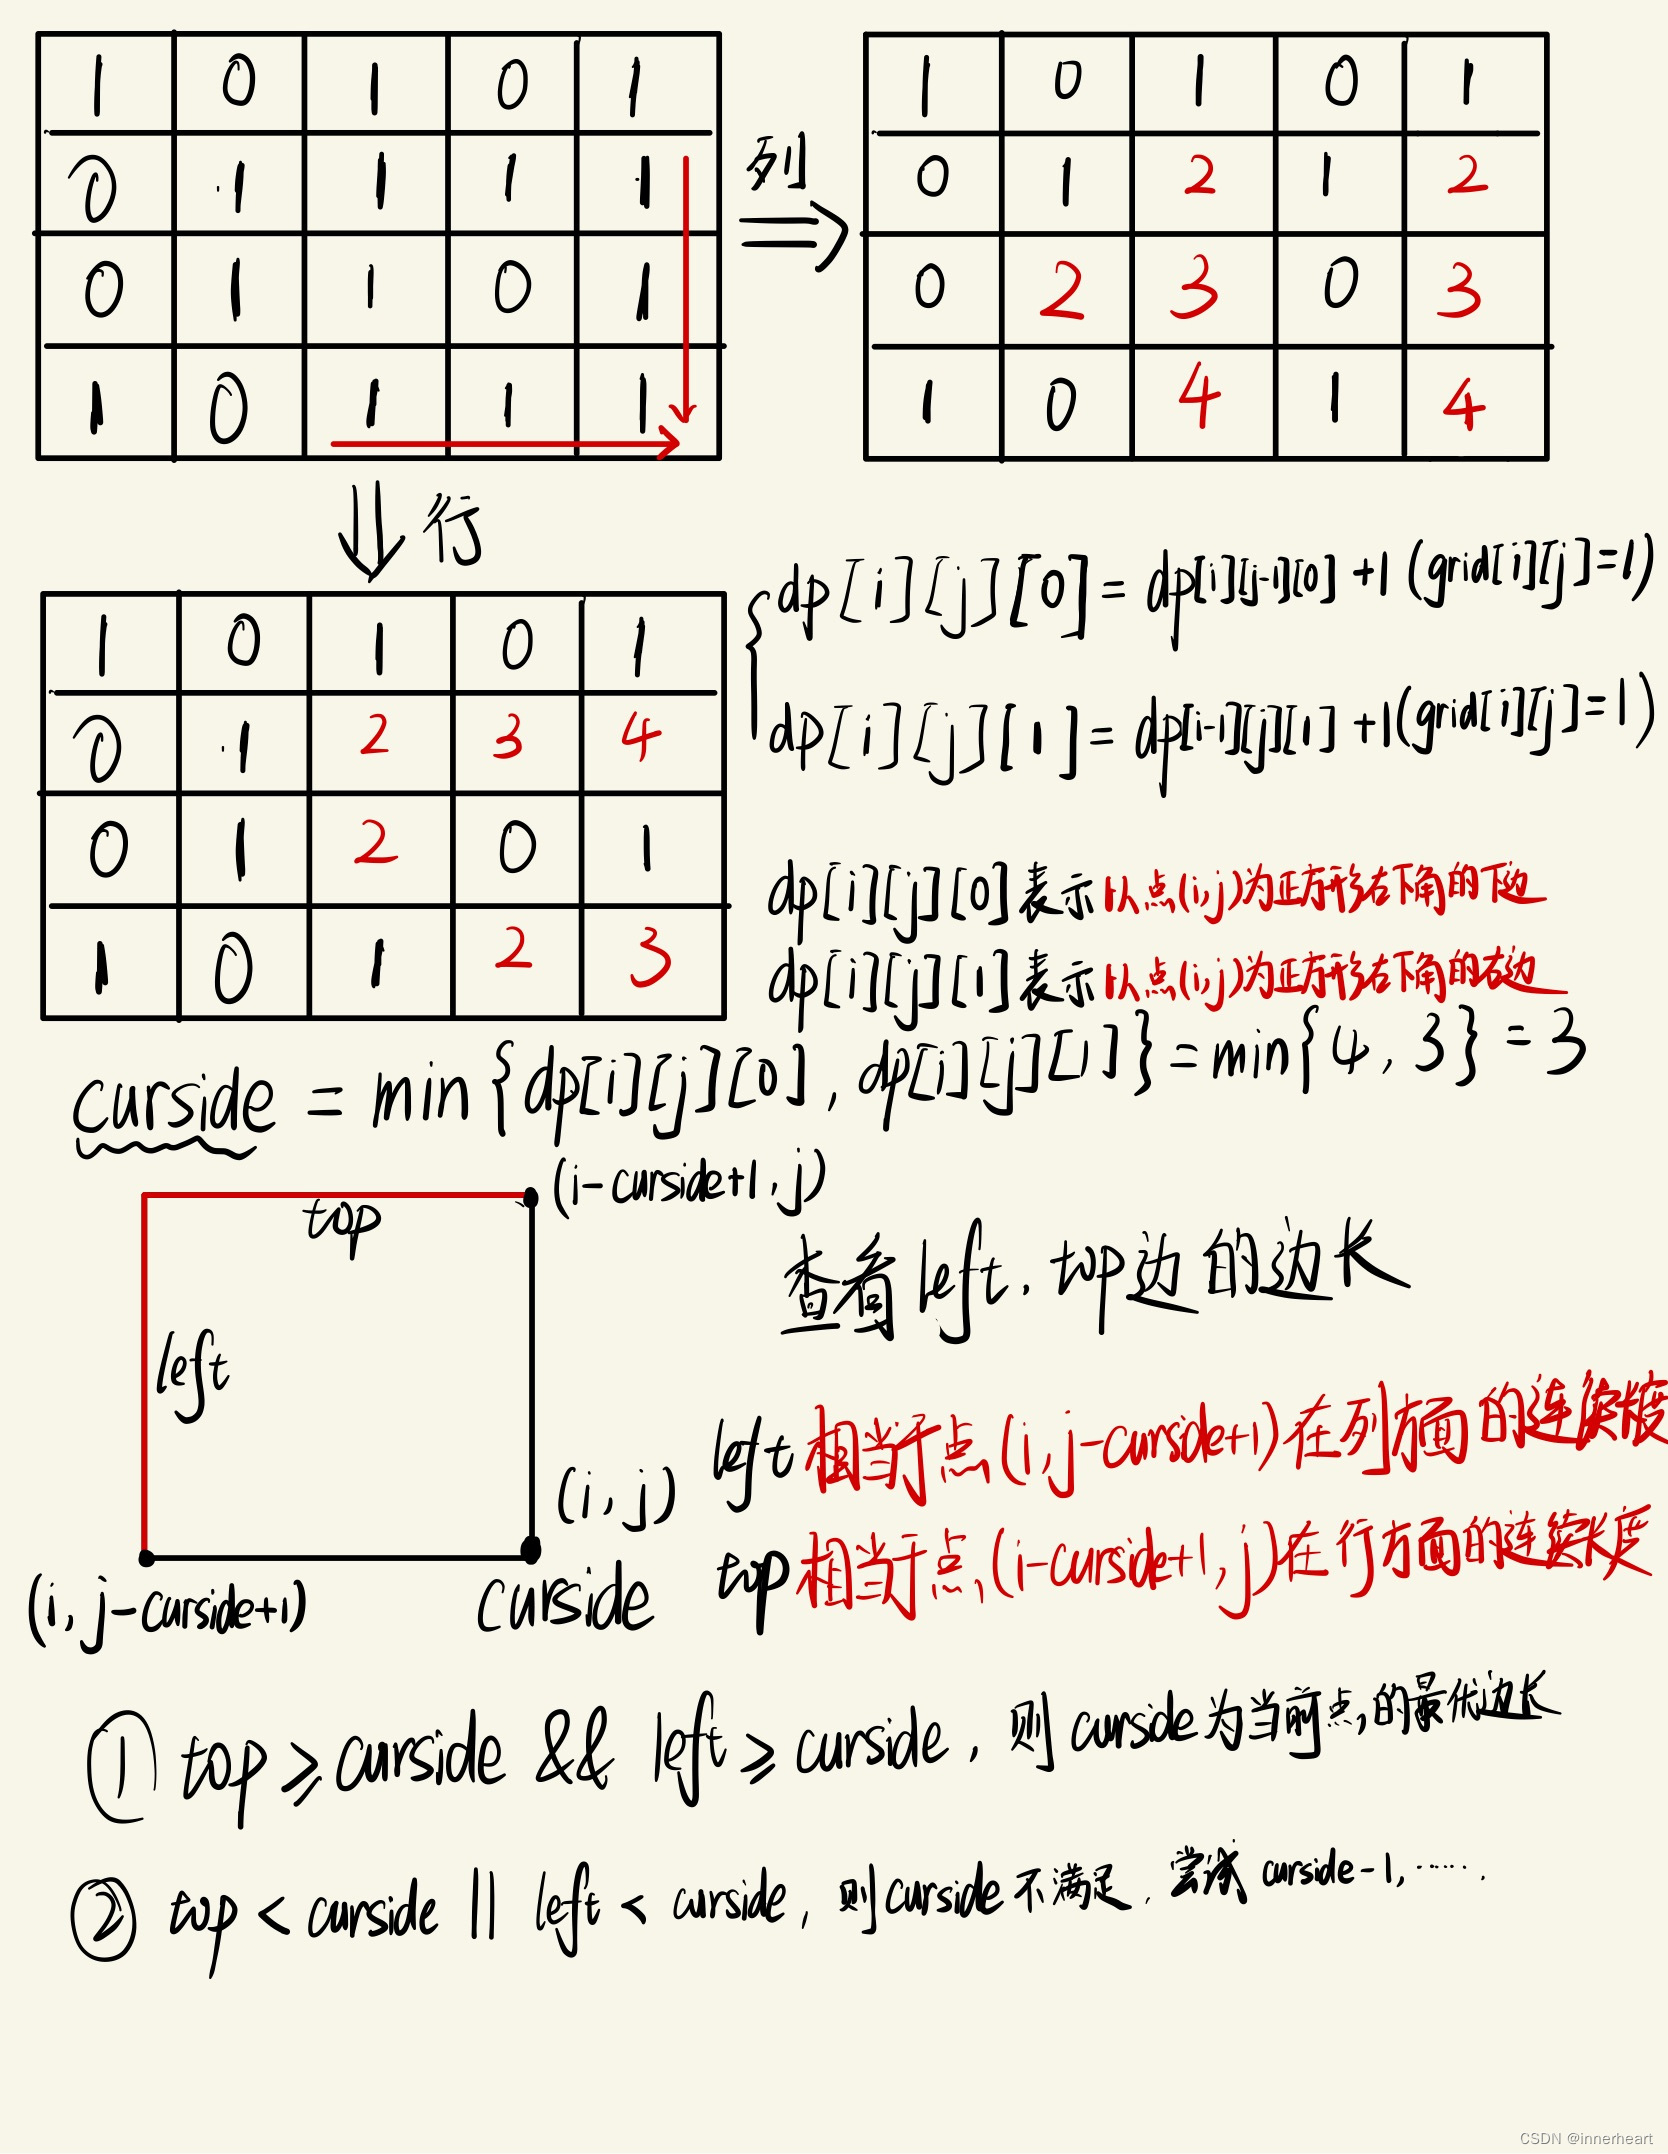 1 0 1 0 1
0 1 1 1 1
0 1 1 0 1
1 0 1 1 1
列
1 0 1 0 1
0 1 2 1 2
0 2 3 0 3
1 0 4 1 4
行
1 0 1 0 1
0 1 2 3 4
0 1 2 0 1
1 0 1 2 3
dp[i][j][0] = dp[i][j-1][0] +1 (grid[i][j]=1)
dp[i][j][1] = dp[i-1][j][1] +1(grid[i][j]=1)
dp[i][j][0]表示以点(i,j)为正方形右下角的下边
dp[i][j][1]表示以点(i,j)为正方形右下角的右边
curside = min{dp[i][j][0], dp[i][j][1]} = min{4, 3} = 3
(i-curside+1, j)
top
left
(i, j)
(i, j-curside+1)
curside
查看left, top边的边长
left 相当于点(i, j-curside+1)在列方面的连续长度
top 相当于点(i-curside+1, j)在行方面的连续长度
① top ≥ curside && left ≥ curside, 则curside为当前点的最优边长
② top < curside || left < curside, 则curside不满足, 尝试 curside-1, ······
CSDN @innerheart